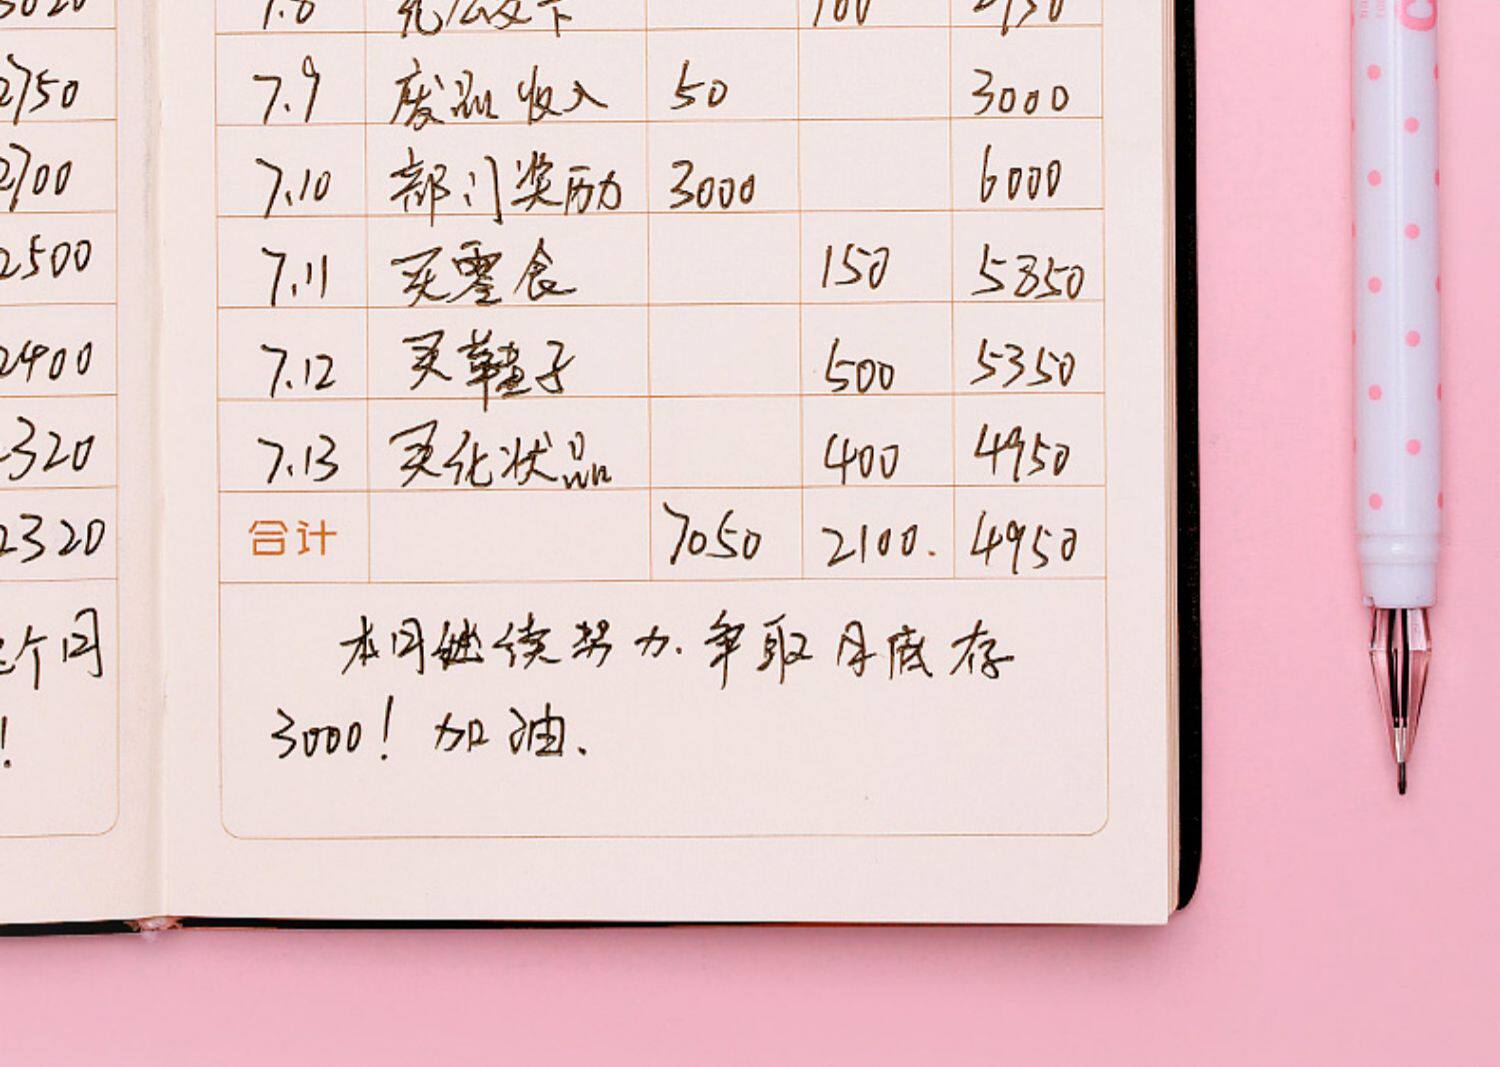 2750
2700
2500
2400
2320
2320
个月
!
7.8 充公交卡 100 2950
7.9 废品收入 50 3000
7.10 部门奖励 3000 6000
7.11 买零食 150 5850
7.12 买鞋子 500 5350
7.13 买化状品 400 4950
合计 7050 2100. 4950
本月继续努力.争取月底存
3000！加油.